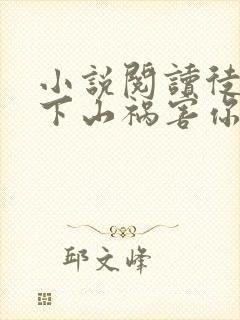 小説閱讀徒
下山禍害你
邱文峰